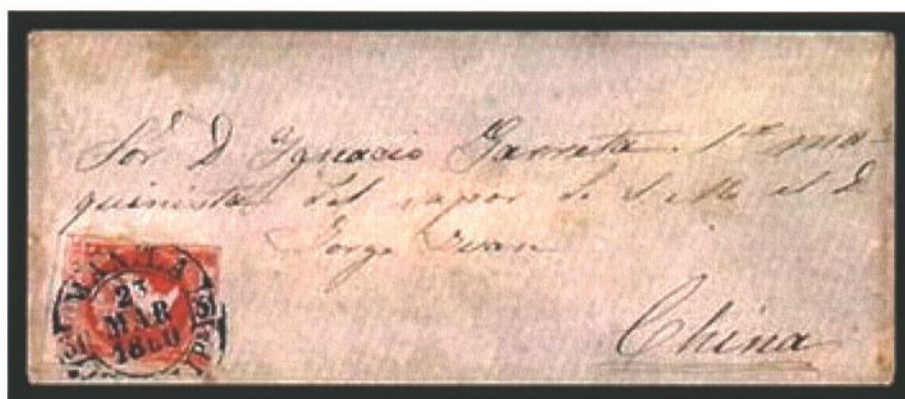 Sor. D. Ignacio Garreta 1er. ma-
quinista del vapor de S. M. el D.
Jorge Juan
China
MANILA
23
MAR
1860